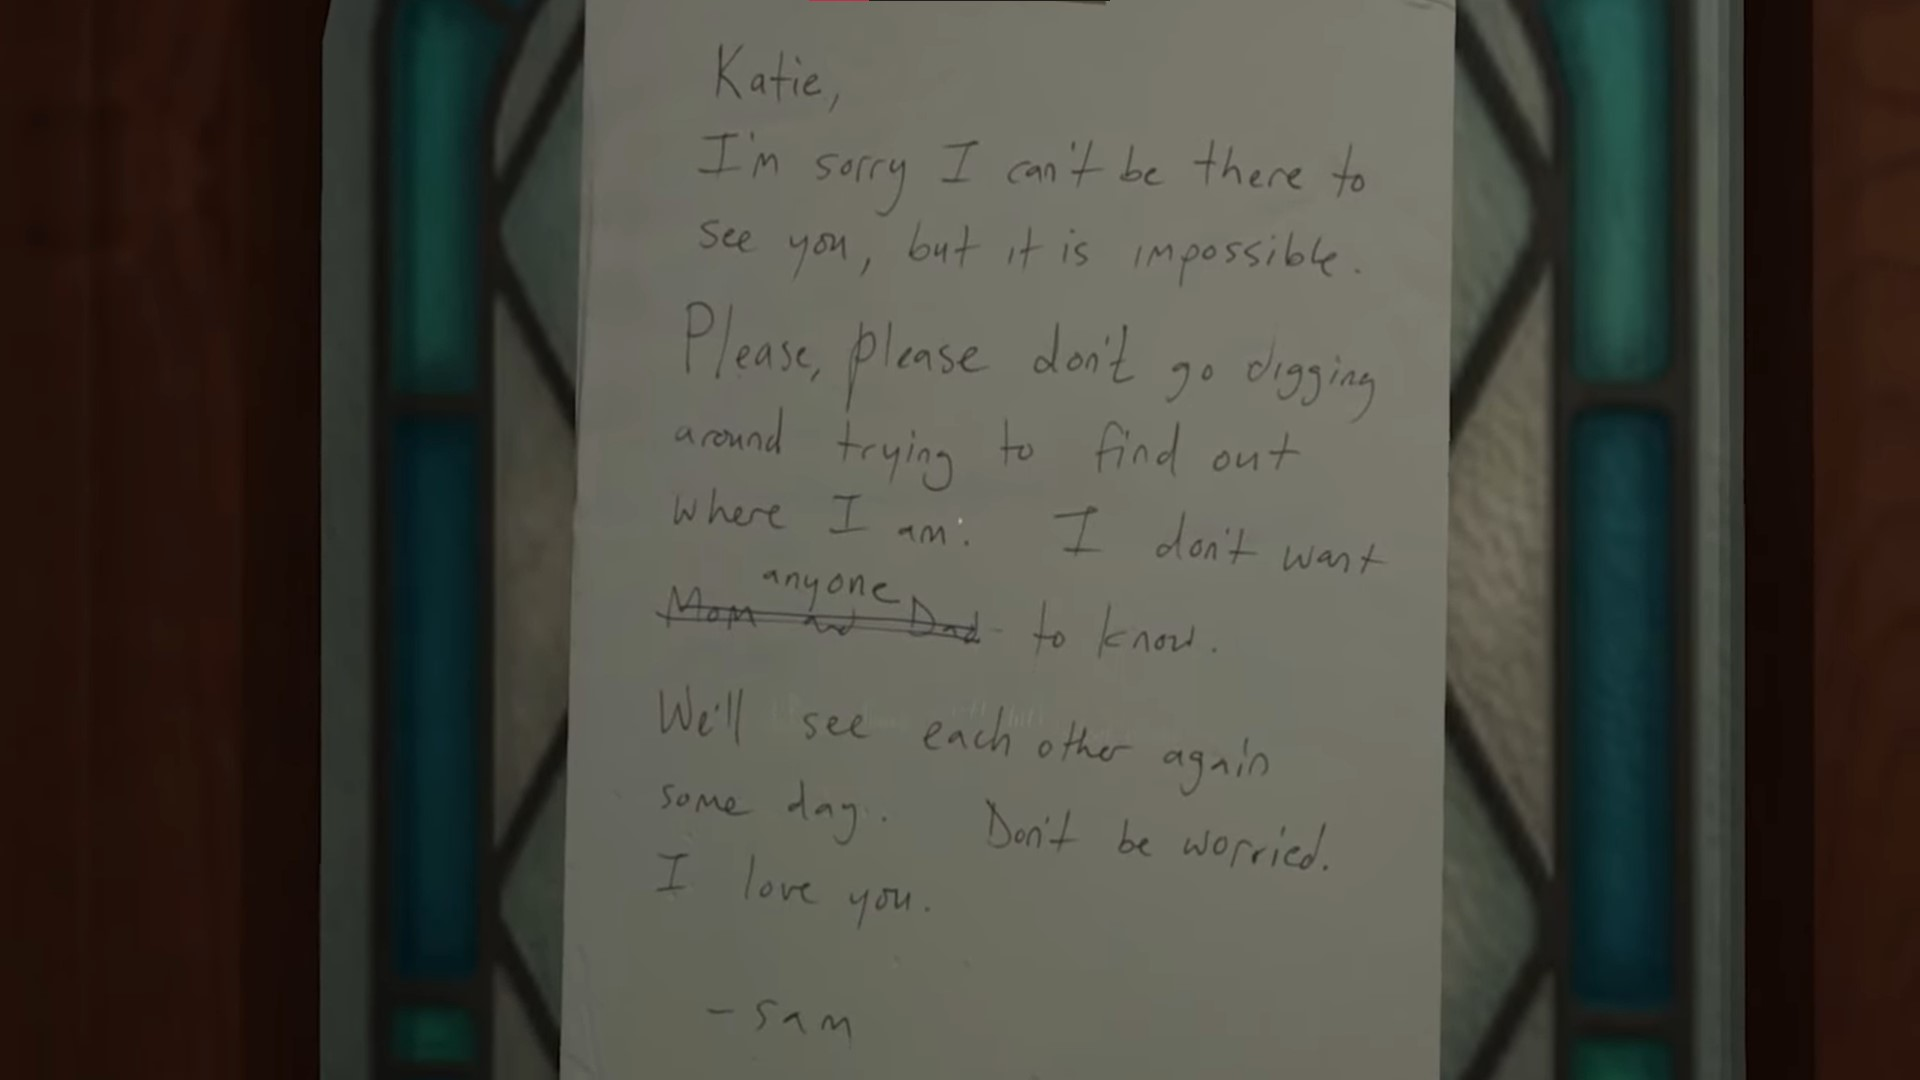 Katie,
I'm sorry I can't be there to
see you, but it is impossible.
Please, please don't go digging
around trying to find out
where I am. I don't want
anyone
Mom and Dad to know.
We'll see each other again
some day. Don't be worried.
I love you.
- Sam